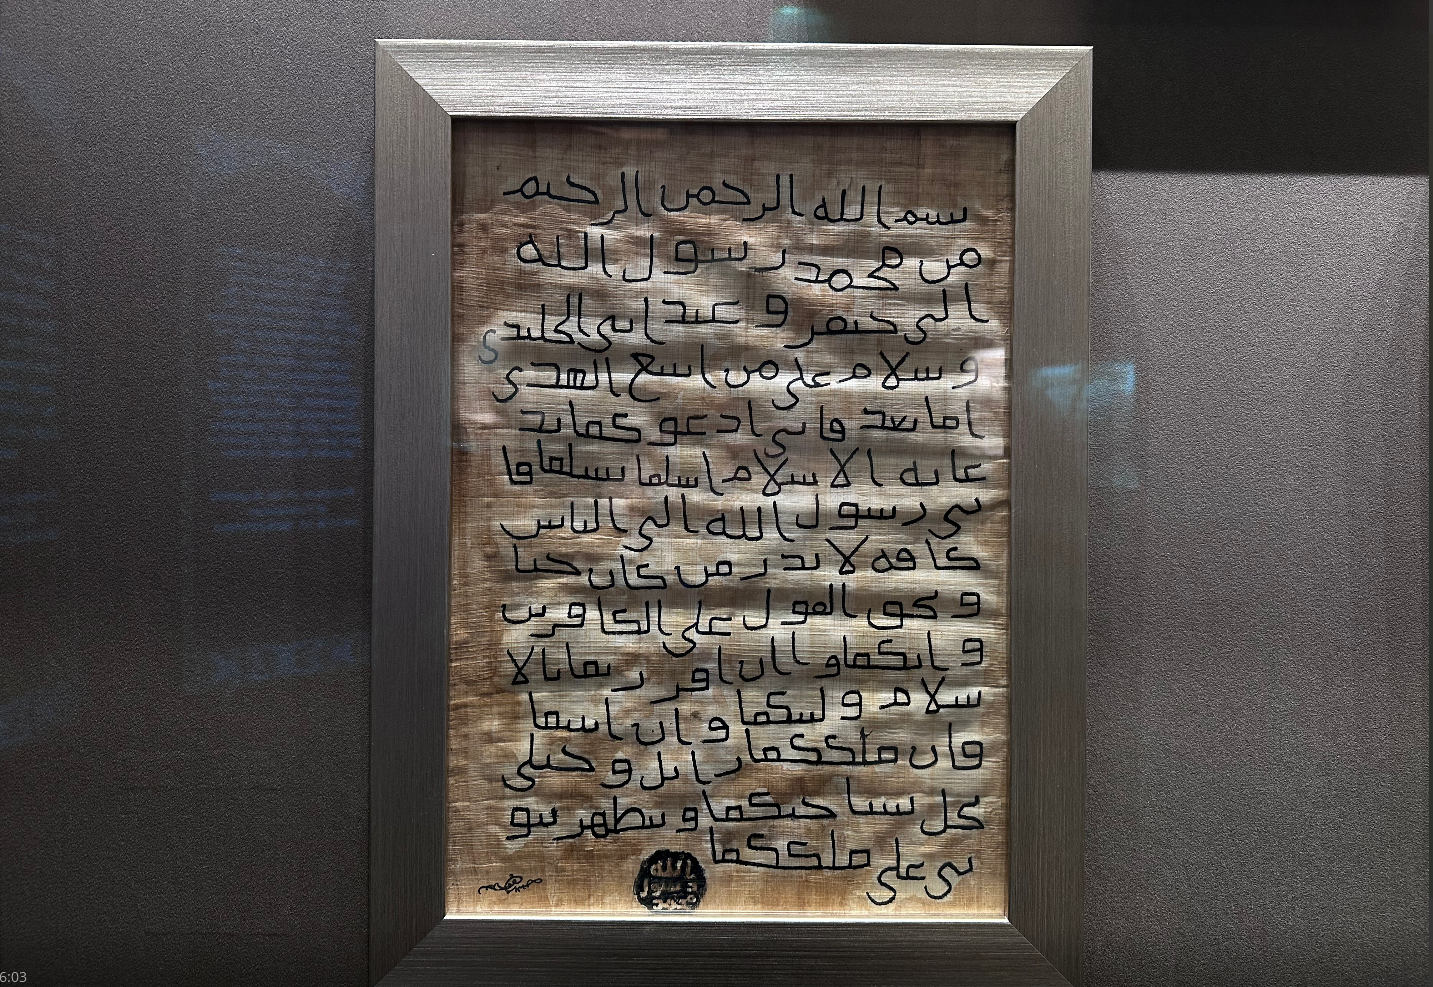 بسم الله الرحمن الرحيم
من محمد رسول الله
الى جيفر و عبد ابني الجلندى
و سلام على من اتبع الهدى
اما بعد فاني ادعوكما بد
عايه الاسلام اسلما تسلما فا
ني رسول الله الى الناس
كافه لانذر من كان حيا
و يحق القول على الكافرين
و انكما و ا ان اقررتما بالا
سلام وليتكما و ان ابيتما
فان ملككما زايل و خيلي
تحل بساحتكما و تظهر نبو
تي على ملككما
الله
رسول
محمد
6:03